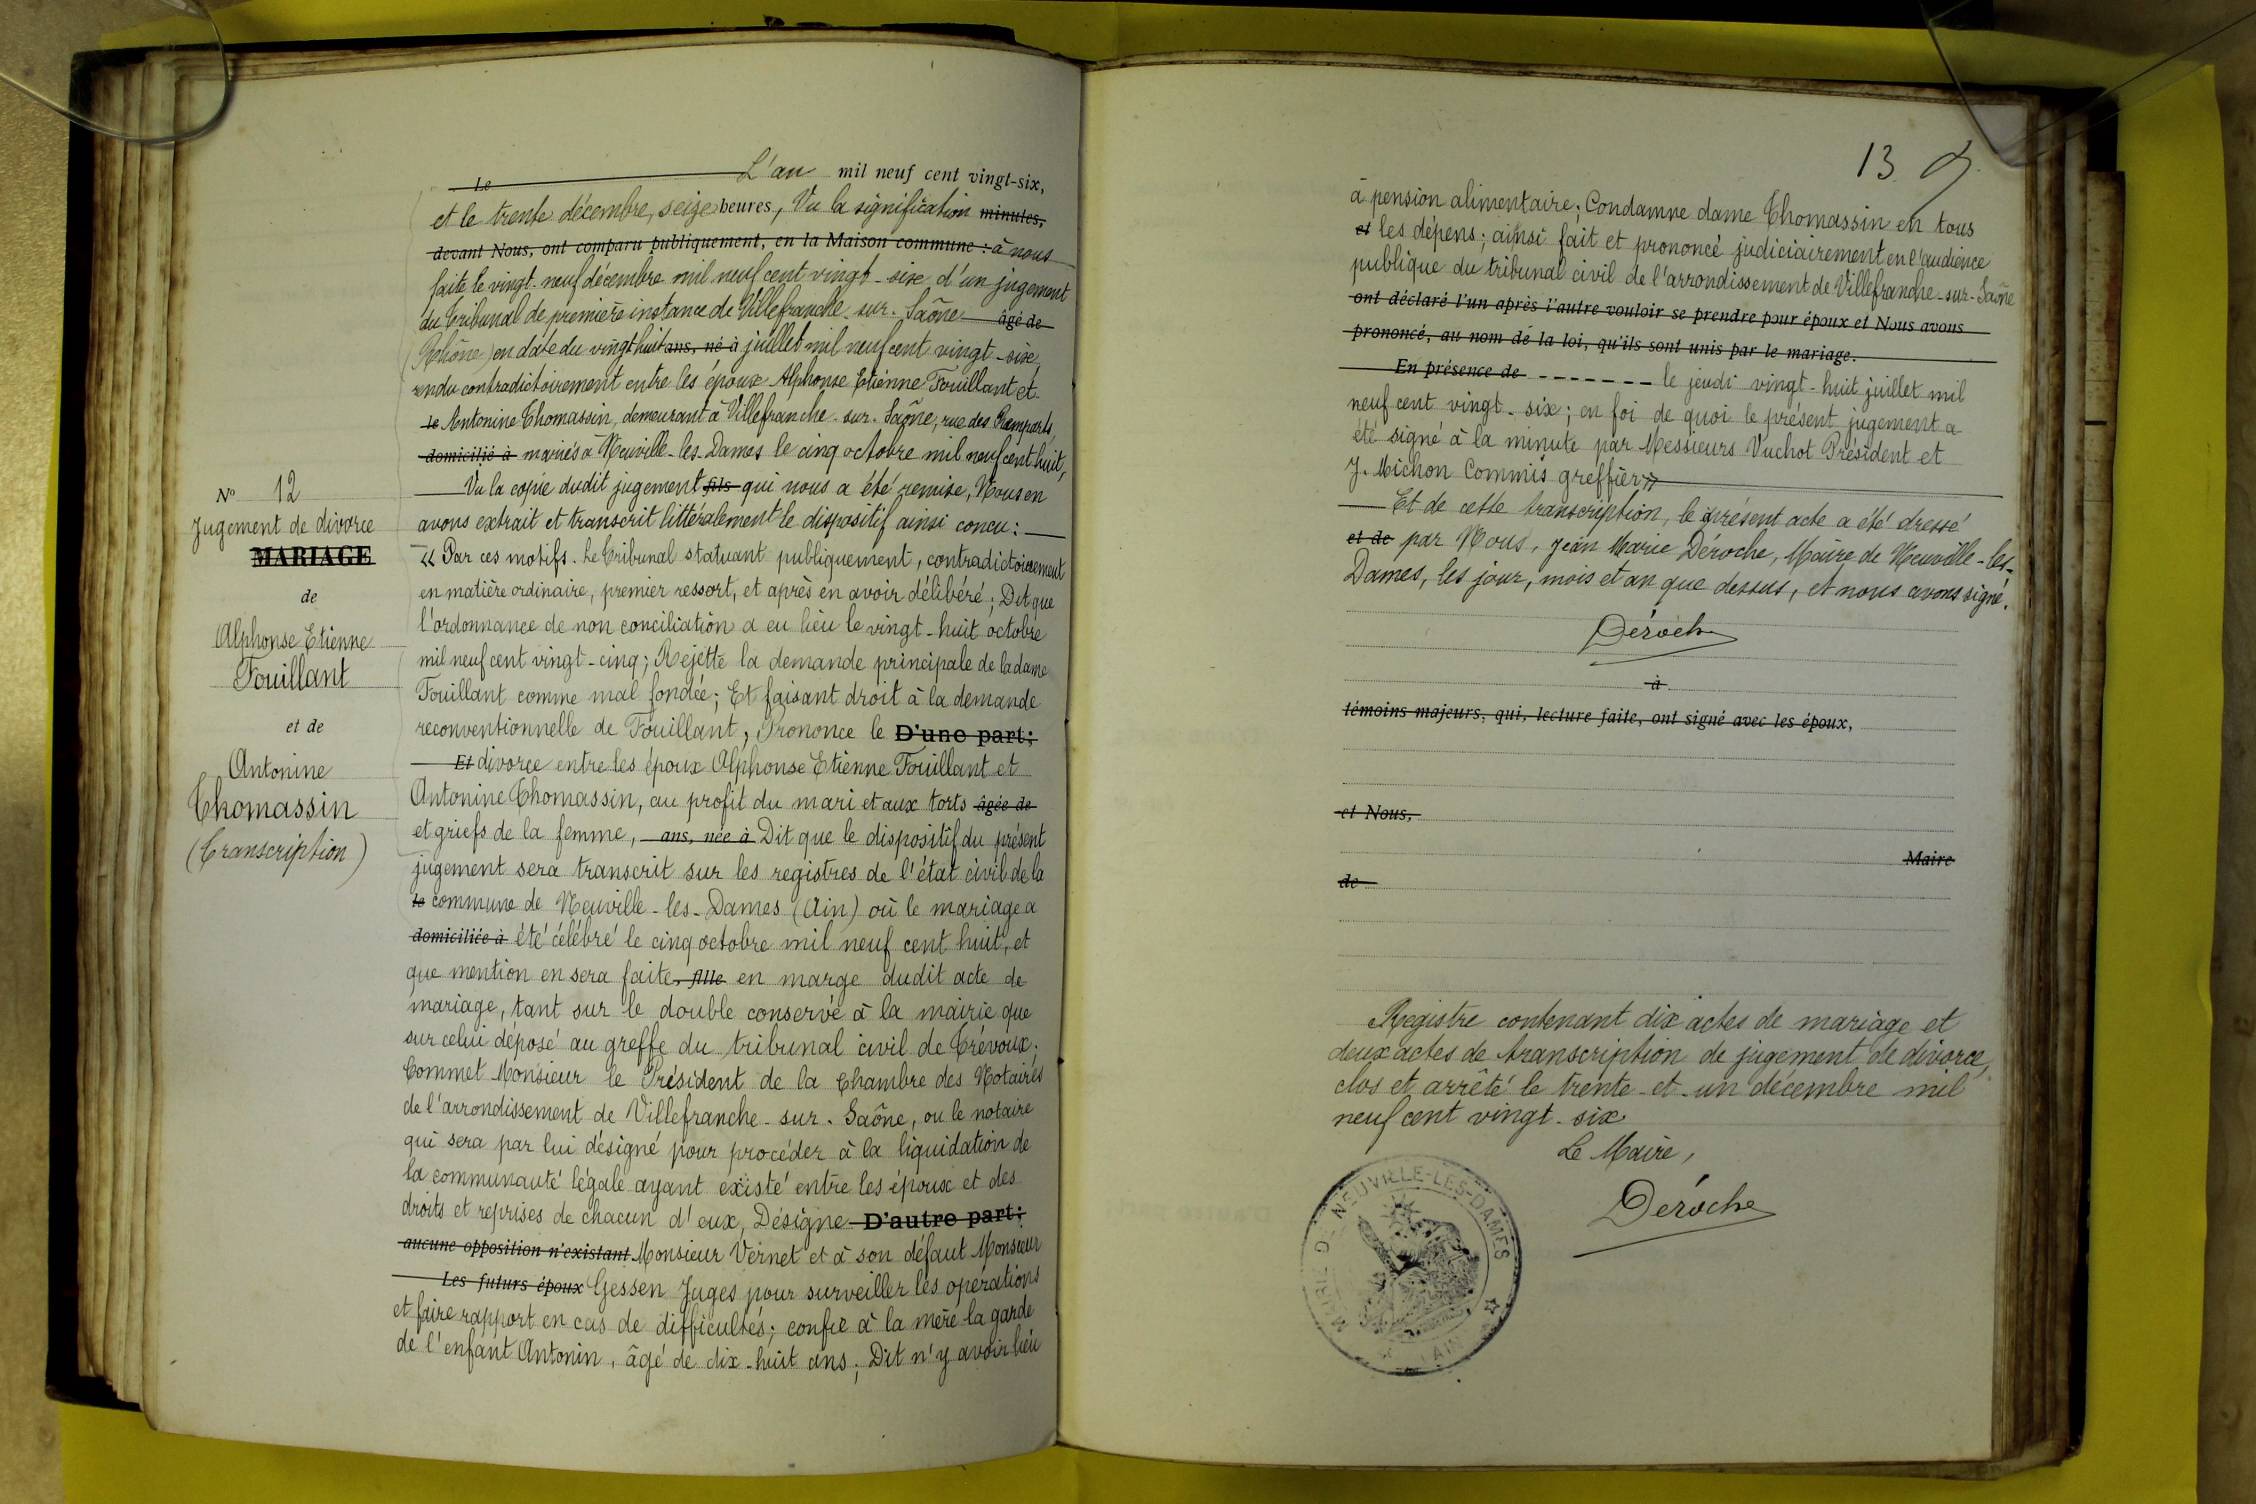 Le L'an mil neuf cent vingt-six,
et le trente décembre, seize heures, Vu la signification minutes,
devant Nous, ont comparu publiquement, en la Maison commune : à nous
faite le vingt-neuf décembre mil neuf cent vingt-six d'un jugement
du Tribunal de première instance de Villefranche-sur-Saône âgé de
(Rhône) en date du vingt huit ans, né à juillet mil neuf cent vingt-six,
rendu contradictoirement entre les époux Alphonse Etienne Fouillant et
le Antonine Thomassin, demeurant à Villefranche-sur-Saône, rue des Remparts,
domicilié à mariés à Neuville-les-Dames le cinq octobre mil neuf cent huit,
Vu la copie dudit jugement fils qui nous a été remise, Nous en
avons extrait et transcrit littéralement le dispositif ainsi concu :
« Par ces motifs. Le Tribunal statuant publiquement, contradictoirement
en matière ordinaire, premier ressort, et après en avoir délibéré ; Dit que
l'ordonnance de non conciliation a eu lieu le vingt-huit octobre
mil neuf cent vingt-cinq ; Rejette la demande principale de la dame
Fouillant comme mal fondée ; Et faisant droit à la demande
reconventionnelle de Fouillant, Prononce le D'une part ;
Et divorce entre les époux Alphonse Etienne Fouillant et
Antonine Thomassin, au profit du mari et aux torts âgée de
et griefs de la femme, ans, née à Dit que le dispositif du présent
jugement sera transcrit sur les registres de l'état civil de la
le commune de Neuville-les-Dames (Ain) où le mariage a
domiciliée à été célébré le cinq octobre mil neuf cent huit, et
que mention en sera faite, fille en marge dudit acte de
mariage, tant sur le double conservé à la mairie que
sur celui déposé au greffe du tribunal civil de Trévoux ;
Commet Monsieur le Président de la Chambre des Notaires
de l'arrondissement de Villefranche-sur-Saône, ou le notaire
qui sera par lui désigné pour procéder à la liquidation de
la communauté légale ayant existé entre les époux et des
droits et reprises de chacun d'eux, Désigne D'autre part ;
aucune opposition n'existant Monsieur Vernet et à son défaut Monsieur
Les futurs époux Gessen Juges pour surveiller les opérations
et faire rapport en cas de difficultés ; confie à la mère la garde
de l'enfant Antonin, âgé de dix-huit ans ; Dit n'y avoir lieu
N° 12
Jugement de divorce
MARIAGE
de
Alphonse Etienne
Fouillant
et de
Antonine
Thomassin
(Transcription)
13
à pension alimentaire ; Condamne dame Thomassin en tous
et les dépens ; ainsi fait et prononcé judiciairement en l'audience
publique du tribunal civil de l'arrondissement de Villefranche-sur-Saône
ont déclaré l'un après l'autre vouloir se prendre pour époux et Nous avons
prononcé, au nom de la loi, qu'ils sont unis par le mariage.
En présence de le jeudi vingt-huit juillet mil
neuf cent vingt-six ; en foi de quoi le présent jugement a
été signé à la minute par Messieurs Vuchot Président et
J. Michon Commis greffier »
Et de cette transcription, le présent acte a été dressé
et de par Nous, Jean Marie Déroche, Maire de Neuville-les-
Dames, les jour, mois et an que dessus, et nous avons signé.
Déroche
à
témoins majeurs, qui, lecture faite, ont signé avec les époux,
et Nous,
Maire
de
Registre contenant dix actes de mariage et
deux actes de transcription de jugement de divorce,
clos et arrêté le trente-et-un décembre mil
neuf cent vingt-six
Le Maire,
Déroche
MAIRIE DE NEUVILLE-LES-DAMES
AIN